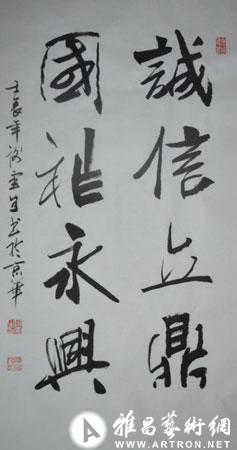 誠信立鼎
國祚永興
壬辰年
書於京華
雅昌藝術網
WWW.ARTRON.NET